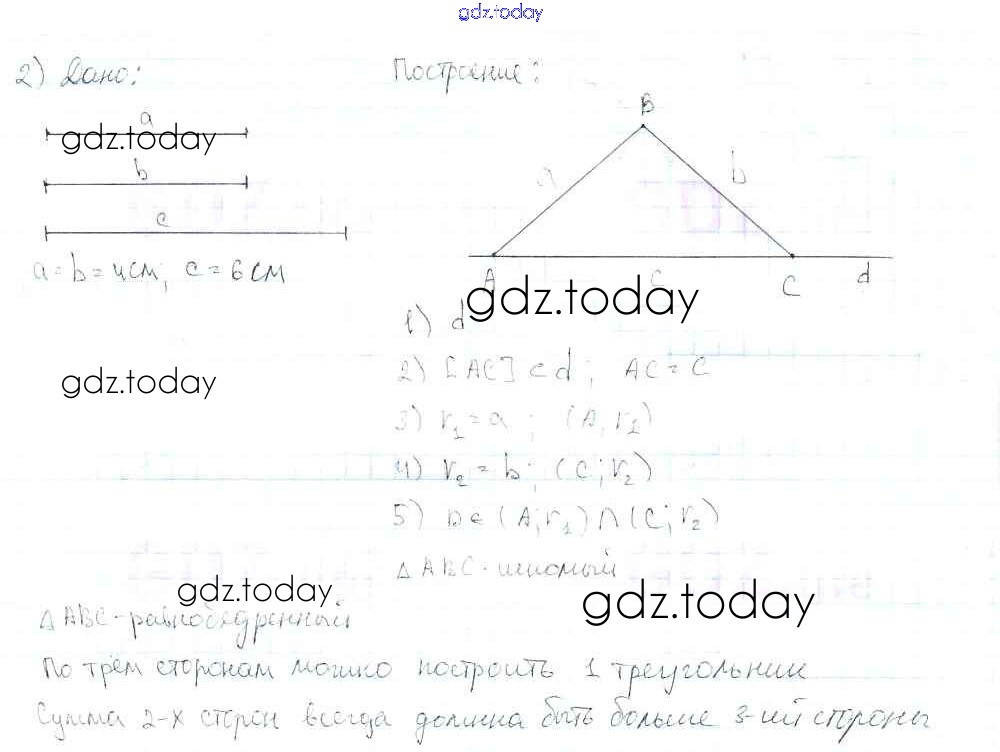 gdz.today
2) Дано:
a
gdz.today
b
c
a = b = 4см; c = 6см
gdz.today
Построение:
B
a
b
A
c
C
d
gdz.today
1) d
2) [AC] ⊂ d; AC = C
3) r₁ = a; (A, r₁)
4) r₂ = b; (C; r₂)
5) B ∈ (A; r₁) ∩ (C; r₂)
△ ABC - искомый
gdz.today
gdz.today
△ ABC - равнобедренный
По трём сторонам можно построить 1 треугольник
Сумма 2-х сторон всегда должна быть больше 3-ий стороны